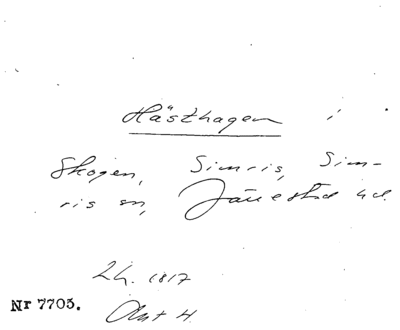 Hästhagen i
Skogen, Simris, Sim-
ris sn, Järrestad hd.
Lh. 1817
Akt 4.
Nr 7705.